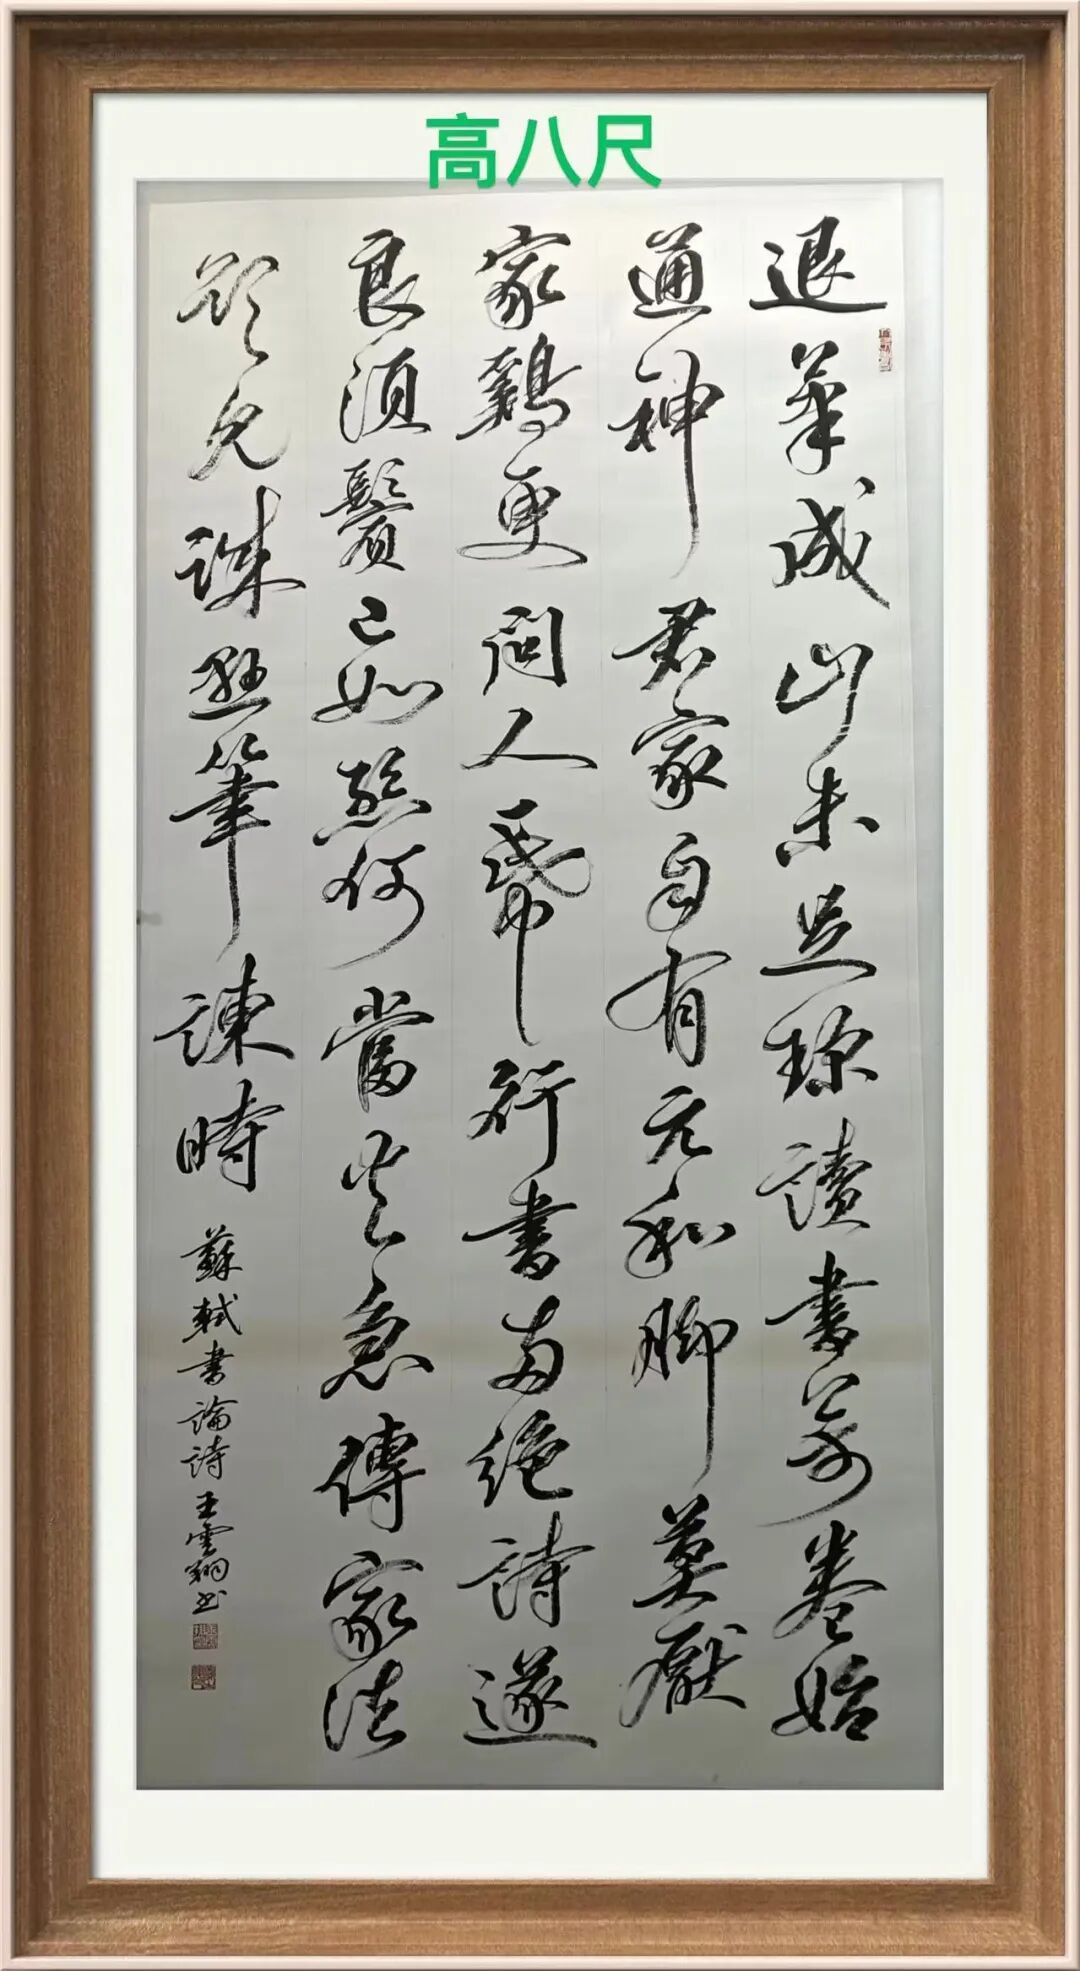 高八尺
退筆成山未足珍讀書萬卷始
通神君家自有元和脚莫厭
家鷄更問人一帋行書兩絕詩遂
良須鬢已如絲何當火急傳家法
欲見誠懸筆諫時
蘇軾書論詩王雲翔书